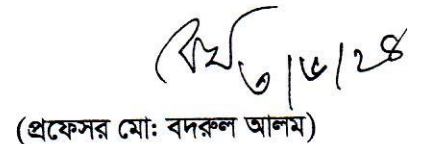 ৩/৬/২৪
(প্রফেসর মো: বদরুল আলম)